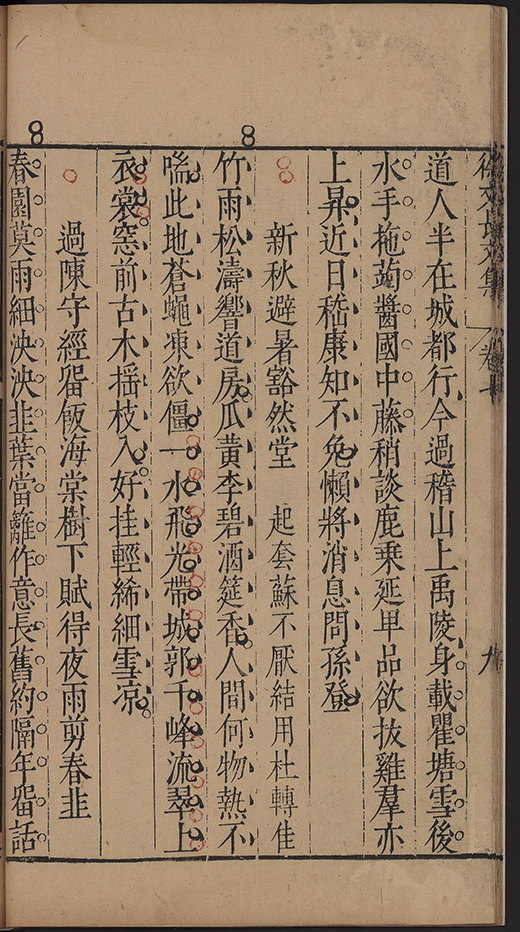 徐文長文集 卷七 九
道人半在城都行今過稽山上禹陵身載瞿塘雪後
水手拖蒟醬國中藤稍談鹿乗延甲品欲抜雞羣亦
上昇近日嵇康知不免懶將消息問孫登
新秋避暑豁然堂 起套蘇不厭結用杜轉佳
竹雨松濤響道房瓜黃李碧酒筵香人間何物熱不
喘此地蒼蠅凍欲僵一水飛光帶城郭千峰流翠上
衣裳窑前古木揺枝入好挂輕絺細雪凉
過陳守經畱飯海棠樹下賦得夜雨剪春韭
春園莫雨細泱泱韭葉當籬作意長舊約隔年畱話
8
8